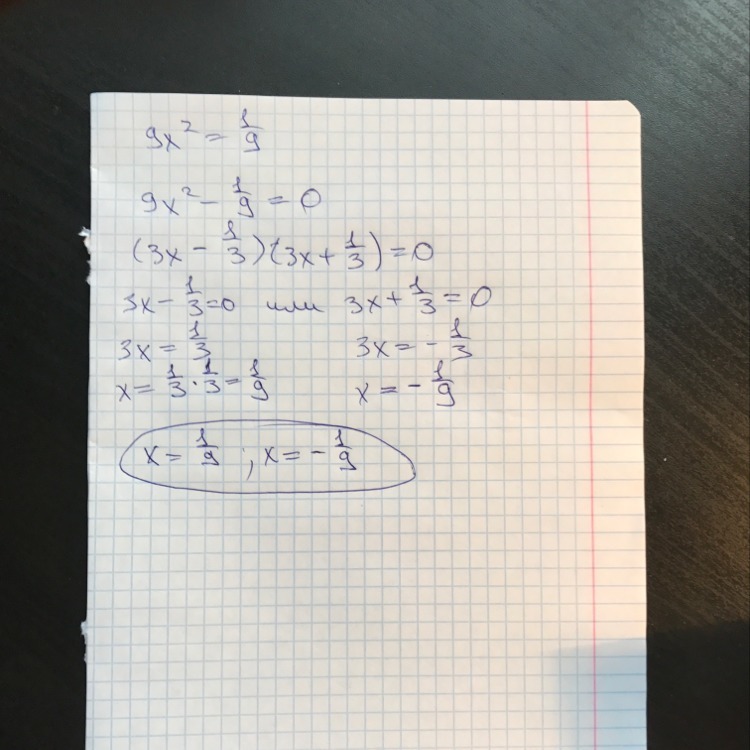 9x² = 1/9
9x² - 1/9 = 0
(3x - 1/3)(3x + 1/3) = 0
3x - 1/3 = 0 или 3x + 1/3 = 0
3x = 1/3 3x = - 1/3
x = 1/3 · 1/3 = 1/9 x = - 1/9
x = 1/9 ; x = - 1/9